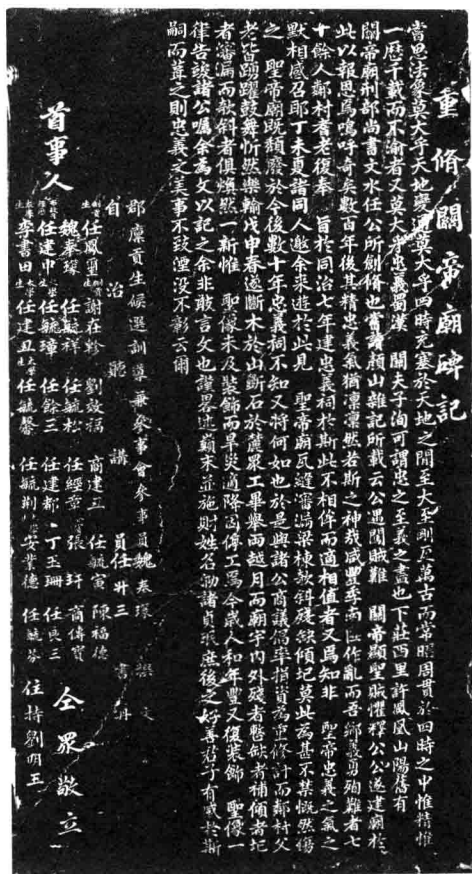 重修關帝廟碑記
當思法象莫大乎天地變通莫大乎四時充塞於天地之間至大至剛亙萬古而常昭周貫於四時之中惟精惟
一歷千載而不渝者又莫大乎忠義蜀漢 關夫子洵可謂忠之至義之盡也下莊西里許鳳凰山陽舊有
關帝廟刑部尚書文水任公所創修也嘗讀顏山雜記所載云公遇闖賊難 關帝顯聖賊懼釋公公遂建廟於
此以報恩焉嗚呼奇矣數百年後其精忠義氣猶凜凜然若斯之神哉咸豐季南匪作亂而吾鄉義勇殉難者七
十餘人鄰村耆老復奉 旨於同治七年建忠義祠於斯此不相侔而適相值者又焉知非 聖帝忠義之氣之
默相感召耶丁未夏諸同人邀余來遊於此見 聖帝廟瓦縫滲漏梁棟欹斜殘缺傾圮莫此為甚不禁慨然傷
之 聖帝廟既頹廢於今後數十年忠義祠不知又將何如也於是與諸公商議倡率捐資為重修計而鄰村父
老皆踴躍鼓舞忻然樂輸戊申春遂斷木於山斷石於麓眾工畢舉兩越月而廟宇內外殘者整缺者補傾者圮
者滲漏而欹斜者俱煥然一新惟 聖像未及裝飾而旱災適降因停工焉今歲人和年豐又復裝飾 聖像一
律告竣諸公囑余為文以記之余非敢言文也謹畧述巔末並施財姓名勒諸貞珉庶後之好善君子有感於斯
嗣而葺之則忠義之美事不致湮沒不彰云爾
郡廩貢生候選訓導兼參事會參事員魏奉璪 撰文
自治 聽講員任升三 書丹
首事人
任鳳 謝在黔 劉效福 商建三 任毓寅 陳福德
魏奉璪 任毓祥 任毓松 任經章 張玕 商傳寶
任建中 任毓璋 任餘三 任建都 丁玉珊 任長三
李書田 任建丑 任毓馨 任毓荆 安業德 任毓芬
住持劉明玉
仝眾敬立